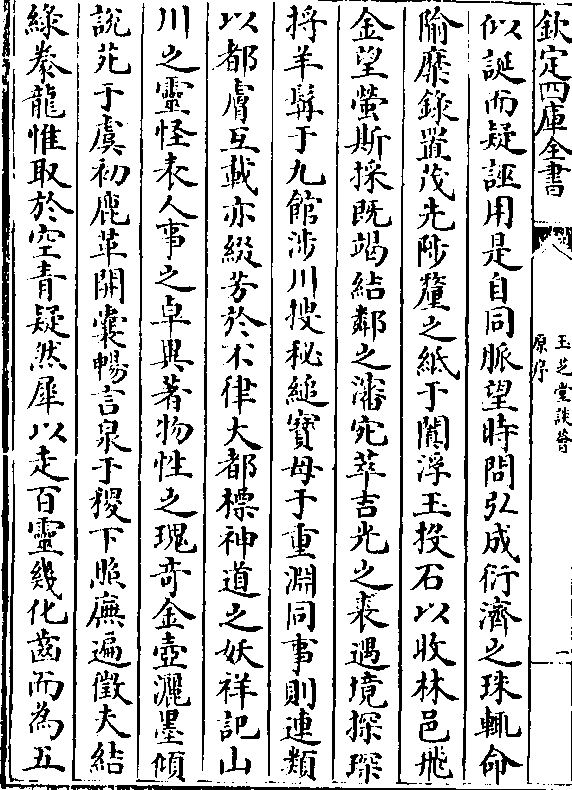 欽定四庫全書
玉芝堂談薈
原序
一
似誕而疑誣用是自同脈望時問弘成衍濟之珠輒命
隃糜錄置茂先陟釐之紙于闐浮玉投石以收林邑飛
金望螢斯採既竭結鄰之瀋宛萃吉光之裘遇境探琛
捋羊髯于九館涉川搜秘縋寶母于重淵同事則連類
以都膚互載亦綴芳於不律大都標神道之妖祥記山
川之靈怪表人事之卓異著物性之瑰奇金壺灑墨傾
說苑于虞初鹿革開囊暢言泉于稷下照廡遍徵夫結
綠豢龍惟取於空青疑然犀以走百靈幾化齒而為五